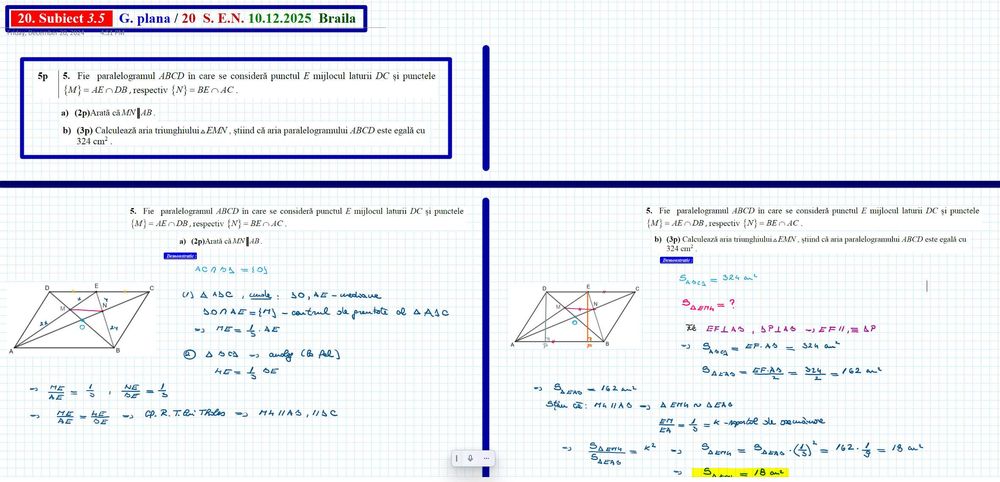 20. Subiect 3.5 G. plana / 20 S. E.N. 10.12.2025 Braila
Friday, December 20, 2024 4:51 PM
5p 5. Fie paralelogramul ABCD în care se consideră punctul E mijlocul laturii DC și punctele
{M} = AE ∩ DB, respectiv {N} = BE ∩ AC.
a) (2p)Arată că MN ∥ AB.
b) (3p) Calculează aria triunghiului △EMN, știind că aria paralelogramului ABCD este egală cu
324 cm².
5. Fie paralelogramul ABCD în care se consideră punctul E mijlocul laturii DC și punctele
{M} = AE ∩ DB, respectiv {N} = BE ∩ AC.
a) (2p)Arată că MN ∥ AB.
Demonstratie
AC ∩ BD = {O}
D E C
M N
O
A B
(1) Δ ADC, unde: DO, AE - mediane
DO ∩ AE = {M} - centrul de greutate al Δ ADC
=> ME = 1/3 · AE
(2) Δ BCD => analog
NE = 1/3 BE
=> ME/AE = 1/3, NE/BE = 1/3
=> ME/AE = NE/BE => cf. R. T. lui Thales => MN // AB, // DC
5. Fie paralelogramul ABCD în care se consideră punctul E mijlocul laturii DC și punctele
{M} = AE ∩ DB, respectiv {N} = BE ∩ AC.
b) (3p) Calculează aria triunghiului △EMN, știind că aria paralelogramului ABCD este egală cu
324 cm².
Demonstratie
S ABCD = 324 cm²
S ΔEMN = ?
D E C
M N
O
A P F B
EF ⊥ AB, DP ⊥ AB => EF //, ≡ DP
=> S ABCD = EF · AB = 324 cm²
S ΔEAB = EF·AB/2 = 324/2 = 162 cm²
=> S ΔEAB = 162 cm²
Stim că: MN // AB => Δ EMN ~ Δ EAB
EM/EA = 1/3 = k - raportul de asemănare
=> S ΔEMN / S ΔEAB = k² => S ΔEMN = S ΔEAB · (1/3)² = 162 · 1/9 = 18 cm²
=> S ΔEMN = 18 cm²